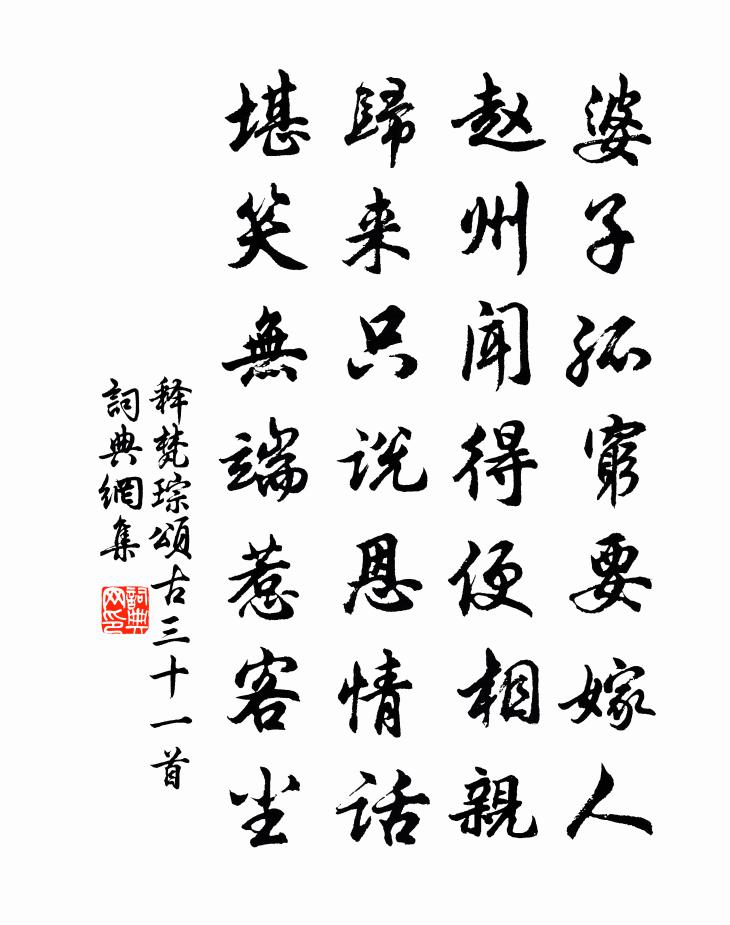 婆子孤窮要嫁人
赵州闻得便相親
歸来只说恩情话
堪笑無端惹客尘
释梵琮頌古三十一首
詞典網集
詞典网印